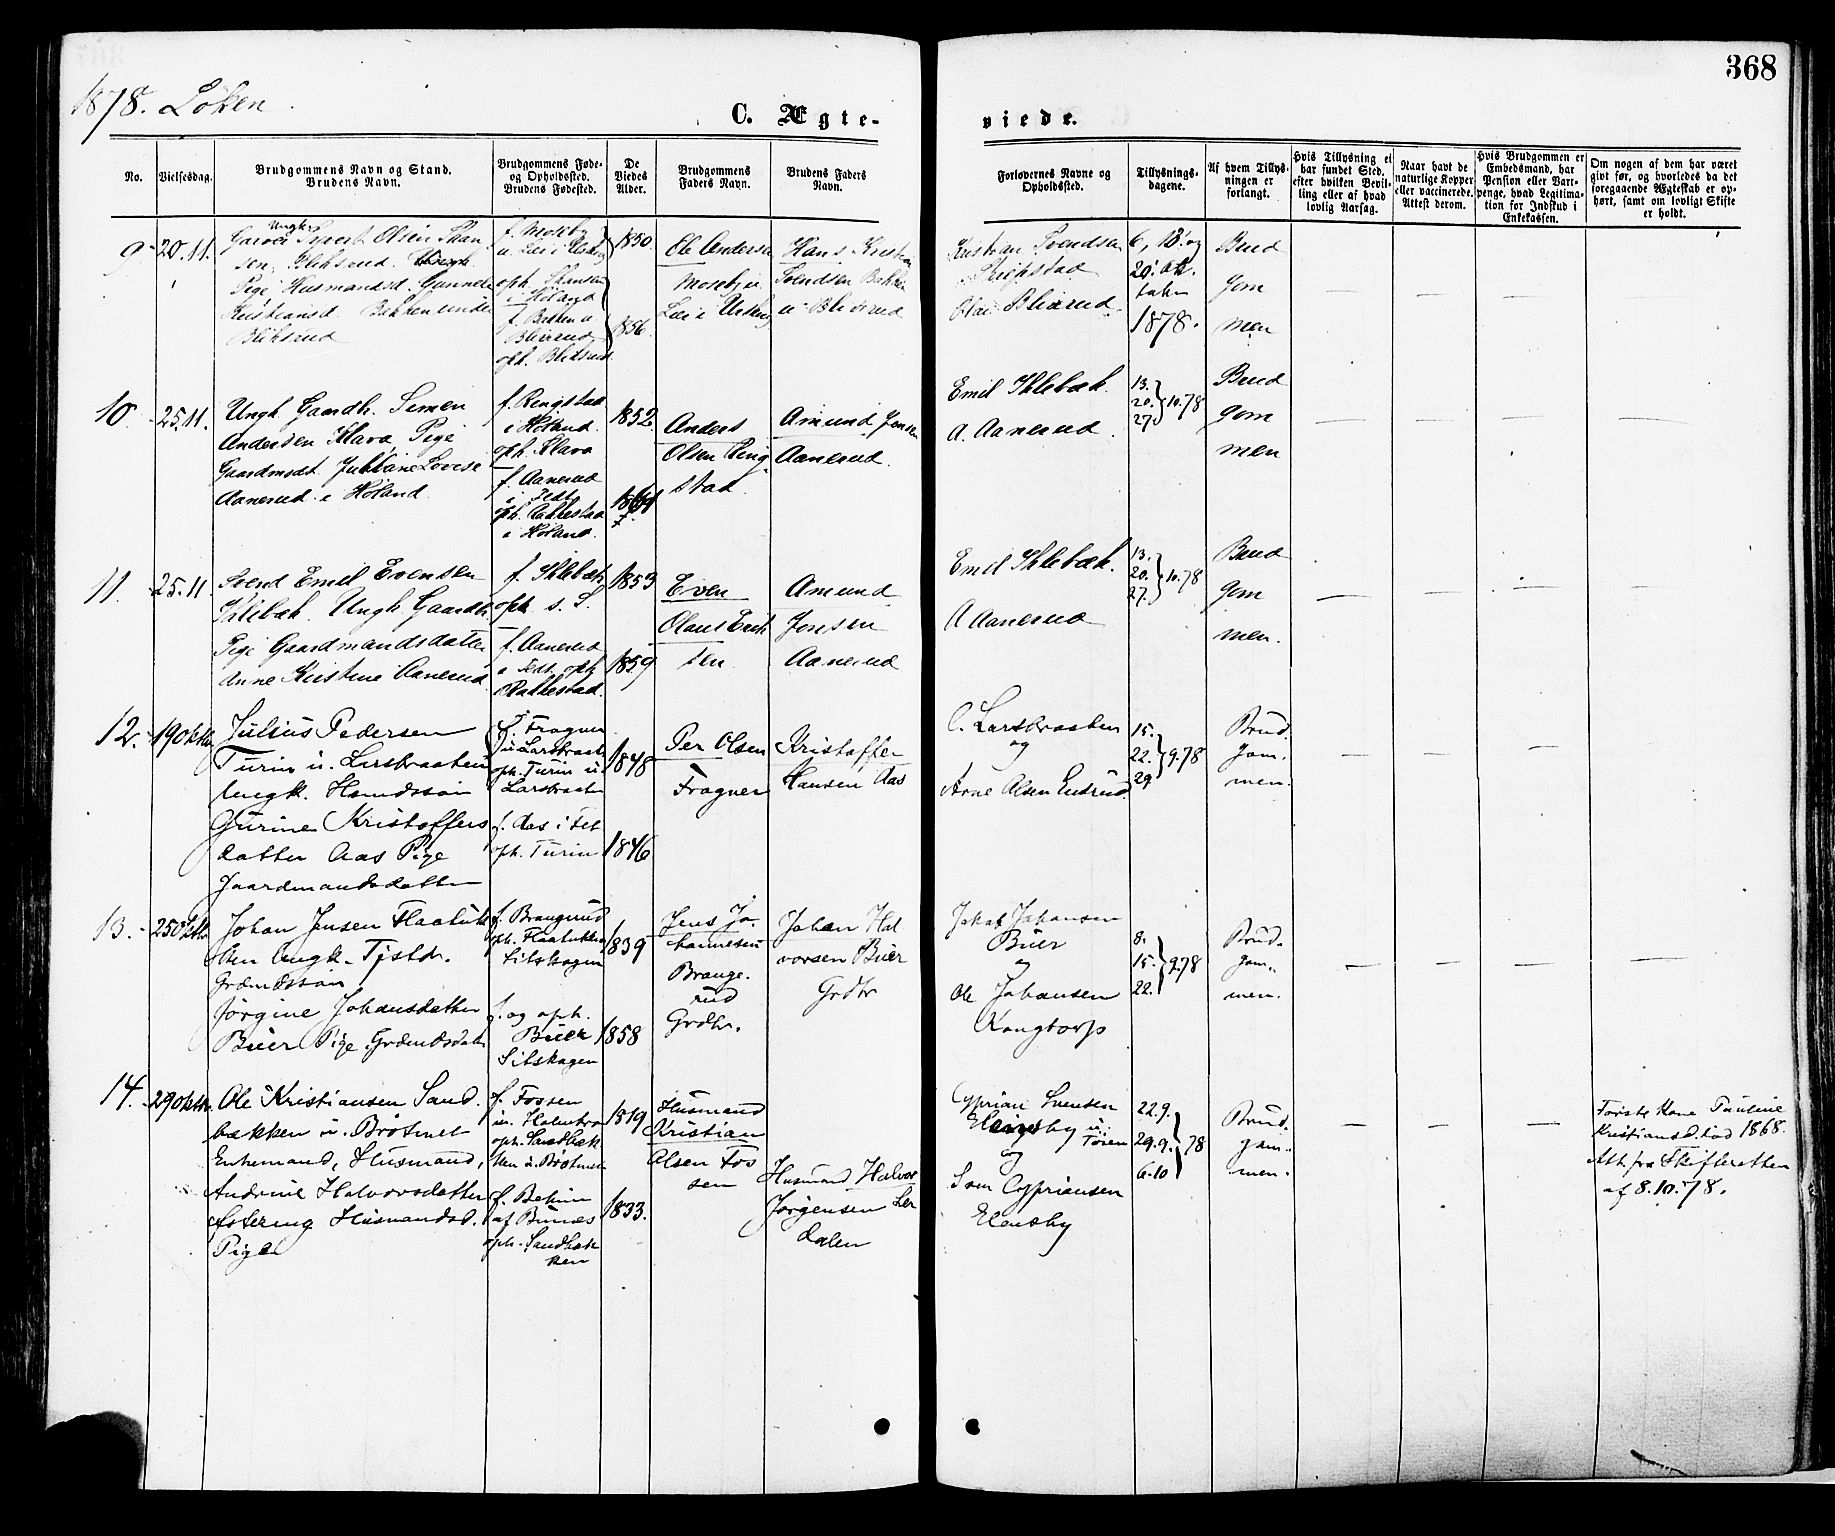 368
1878. Löken
C. Ægte-
viede.
No.
Vielsesdag.
Brudgommens Navn og Stand.
Brudens Navn.
Brudgommens Føde-
og Opholdssted.
Brudens Fødested.
De
Viedes
Alder.
Brudgommens
Faders Navn.
Brudens Faders
Navn.
Forlovernes Navne og
Opholdssted.
Tillysnings-
dagene.
Af hvem Tillys-
ningen er
forlangt.
Hvis Tillysning ei
har fundet Sted,
efter hvilken Bevil-
ling eller af hvad
lovlig Aarsag.
Naar havt de
naturlige Kopper
eller vaccinerede.
Attest derom.
Hvis Brudgommen er
Embedsmand, har
Pension eller Vart-
penge, hvad Legitima-
tion for Indskud i
Enkekassen.
Om nogen af dem har været
givt før, og hvorledes da det
foregaaende Ægteskab er op-
hørt, samt om lovligt Skifte
er holdt.
9
20.11.
Ungk.
Olsen Skan
sen,
Pige Husmandsd. Gunnele
Kristiansd. Bakken under
Bliksrud
f. Moseby
oph. Skansen
i Höland
f. Bakken u
Blixrud
oph. Bliksrud
1850.
1856.
Ole Anderse
Mosebye
Hans Kristia
Svendsen Bakke
u Blixrud
Kristian Svendsen
Olai Blixrud
6, 13' og
20' ok
tober
1878.
Brud
gom
men
10
25.11.
Ungk. Gaardbr. Simen
Andersen Klava, Pige
Gaardmsdt. Julliane Lovise
Aanerud i Höland.
f. Ringstad
i Höland.
oph. Klava
f. Aanerud
i Fedt
oph. Rakkestad
i Höland.
1852
Anders
Olsen Ring
stad.
Amund Jensen
Aanerud.
Emil Ihlebæk.
A. Aanerud
13.
20. } 10.78
27.
Brud
gom
men
11.
25.11
Svend Emil Evensen
Ihlebæk. Ungk. Gaardb.
Pige Gaardmandsdatter
Anne Kristine Aanerud.
f. Ihlebæk
oph. s. S.
f. Aanerud
i Fedt oph
Rakkestad.
1853
1859
Even
Olaus Erik
sen.
Amund
Jensen
Aanerud
Emil Ihlebæk.
A Aanerud
13.
20. } 10.78
27.
Brud
gom
men.
12.
19 oktbr
Julius Pedersen
Turin u. Larsbraaten
Ungk. Hsmdssön
Gurine Kristoffers
datter Aas Pige
Gaardmandsdatter
f. Fragner
u. Larsbraat
oph. Turin u.
Larsbraat
f. Aas i Fet
oph. Turin
1848
1846
Per Olsen
Fragner
Kristoffer
Hansen Aas
C. Larsbraaten
og
Arne Olsen
15.
22. } 9.78
29
Brud.
gom.
men.
13.
25 Oktbr
Johan Jensen Flaatuk
ken Ungk. Tjstdr.
Grdmdssön
Jörgine Johansdatter
Buer Pige Grdmdsdatt.
f. Brangerud
oph. Flaatukken
Sitskogen
f. og oph.
Buer
Sitskogen
1839
1858
Jens Jo
hannesen
Brange.
rud
Grdbr.
Johan Hal
vorsen Buer
Grdbr
Jakob Johansen
Buer
og
Ole Johansen
Kragtorp
8.
15. } 9.78
22.
Brud.
gom.
men.
14.
29 oktbr.
Ole Kristiansen Sand.
bækken u. Brötmet
Enkemand, Husmand,
Andrine Halvorsdatter
Husmandsd.
Pige
f. Fossen
oph. Sandbæk
ken u. Brötmet
oph. Sandbæk
ken
1819
1833.
Husmand
Kristian
Olsen Fos
sen
Husmand Halvor
Jörgensen Ler
dalen
Cyprian Svensen
Elensby u.
Toien
og
Sven Cypriansen
Elensby
22.9.
29.9. } 78
6.10
Brud.
gom.
men.
Förste Kone Pauline
Kristiansd. död 1868.
Att. fra Skifteretten
af 8.10.78.